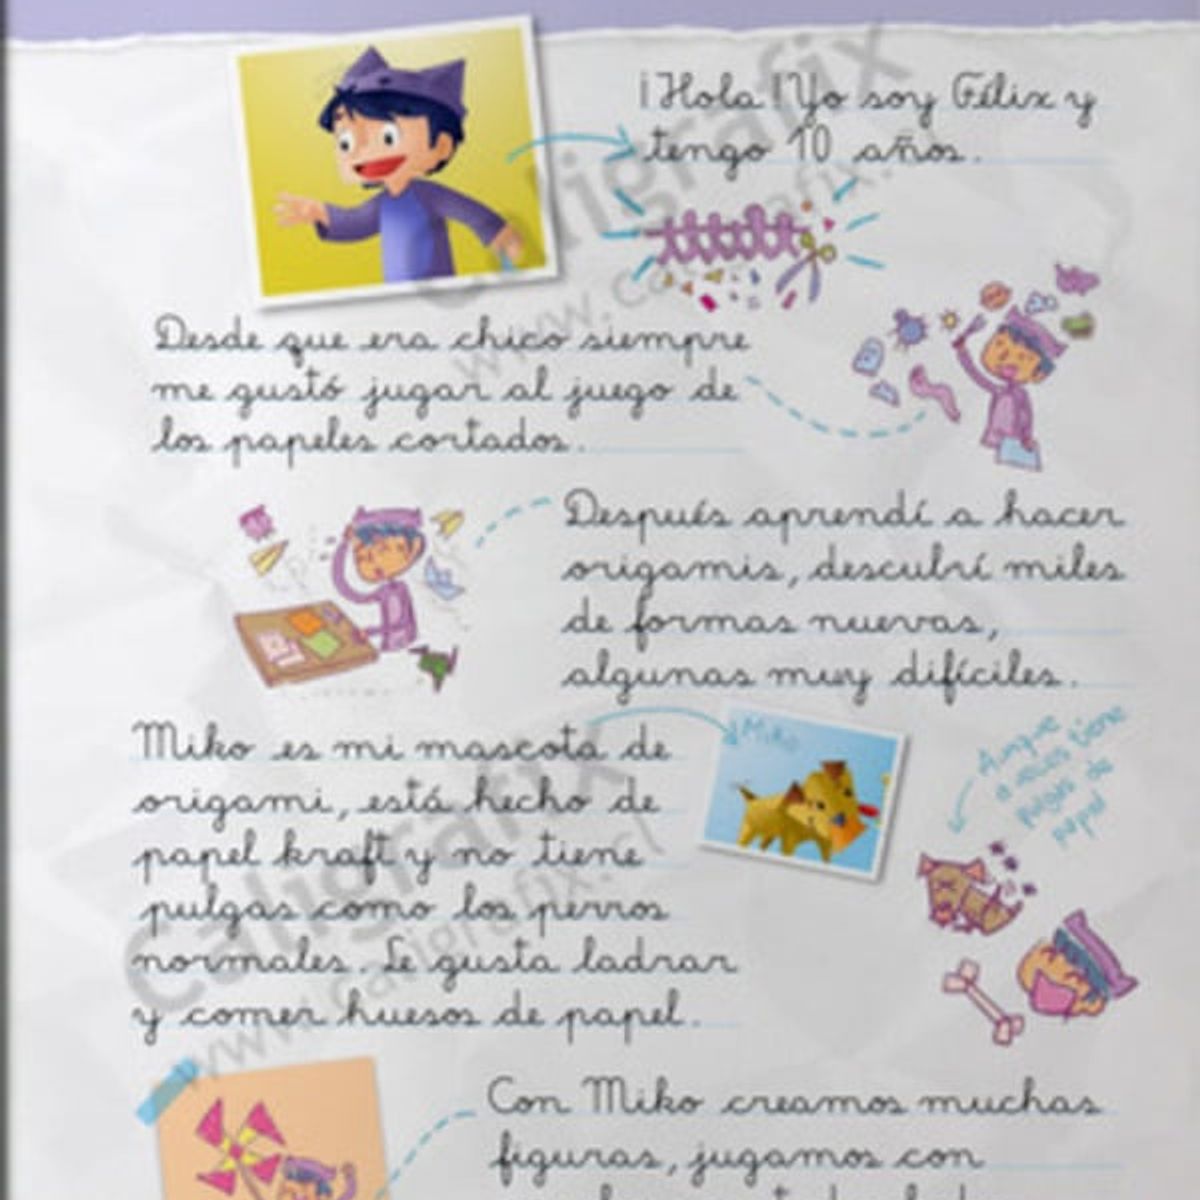 ¡Hola! Yo soy Félix y
tengo 10 años.
Desde que era chico siempre
me gustó jugar al juego de
los papeles cortados.
Después aprendí a hacer
origamis, descubrí miles
de formas nuevas,
algunas muy difíciles.
Miko es mi mascota de
origami, está hecho de
papel kraft y no tiene
pulgas como los perros
normales. Le gusta ladrar
y comer huesos de papel.
Miko
Aunque
a veces tiene
pulgas de
papel
Con Miko creamos muchas
figuras, jugamos con
Caligrafix
www.caligrafix.cl